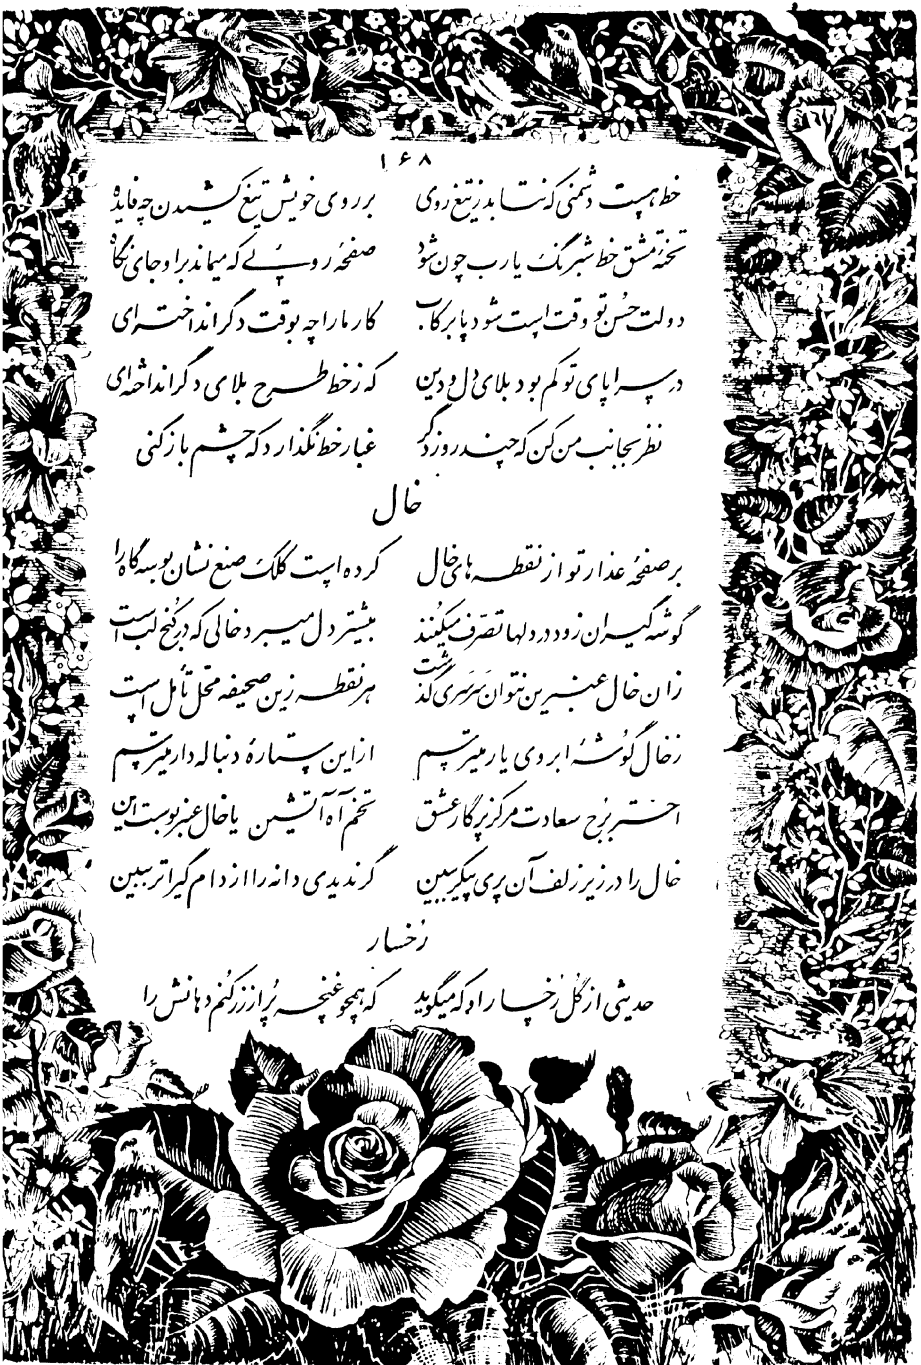 ۱۶۸
خط هست دشمنی که نتابد ز تیغ روی بر روی خویش تیغ کشیدن چه فایده
تختهٔ مشق خط شبرنگ یارب چون شود صفحهٔ روئی که میماند براو جای نگاه
دولت حُسن تو وقت است شود پا برکاب کار ما را چه بوقت دگر انداخته ای
در سراپای تو کم بود بلای دل و دین که ز خط طرح بلای دگر انداخته ای
نظر بجانب من کن که چند روز دگر غبار خط نگذارد که چشم باز کنی
خال
بر صفحهٔ عذار تو از نقطه های خال کرده است کلک صنع نشان بوسه گاه را
گوشه گیران زود در دلها تصرّف میکنند بیشتر دل میبرد خالی که در کُنج لب است
زان خال عنبرین نتوان سَرسَری گذشت هر نقطه زین صحیفه محل تأمل است
ز خال گوشهٔ ابروی یار میترسم از این ستارهٔ دنباله دار میترسم
اختر بُرج سعادت مرکز پرگار عشق تخم آه آتشین یا خال عنبر بوست این
خال را در زیر زلف آن پری پیکر ببین گر ندیدی دانه را از دام گیراتر ببین
رُخسار
حدیثی از گُل رُخسار او که میگوید که همچو غنچه پُر از زر کُنم دهانش را